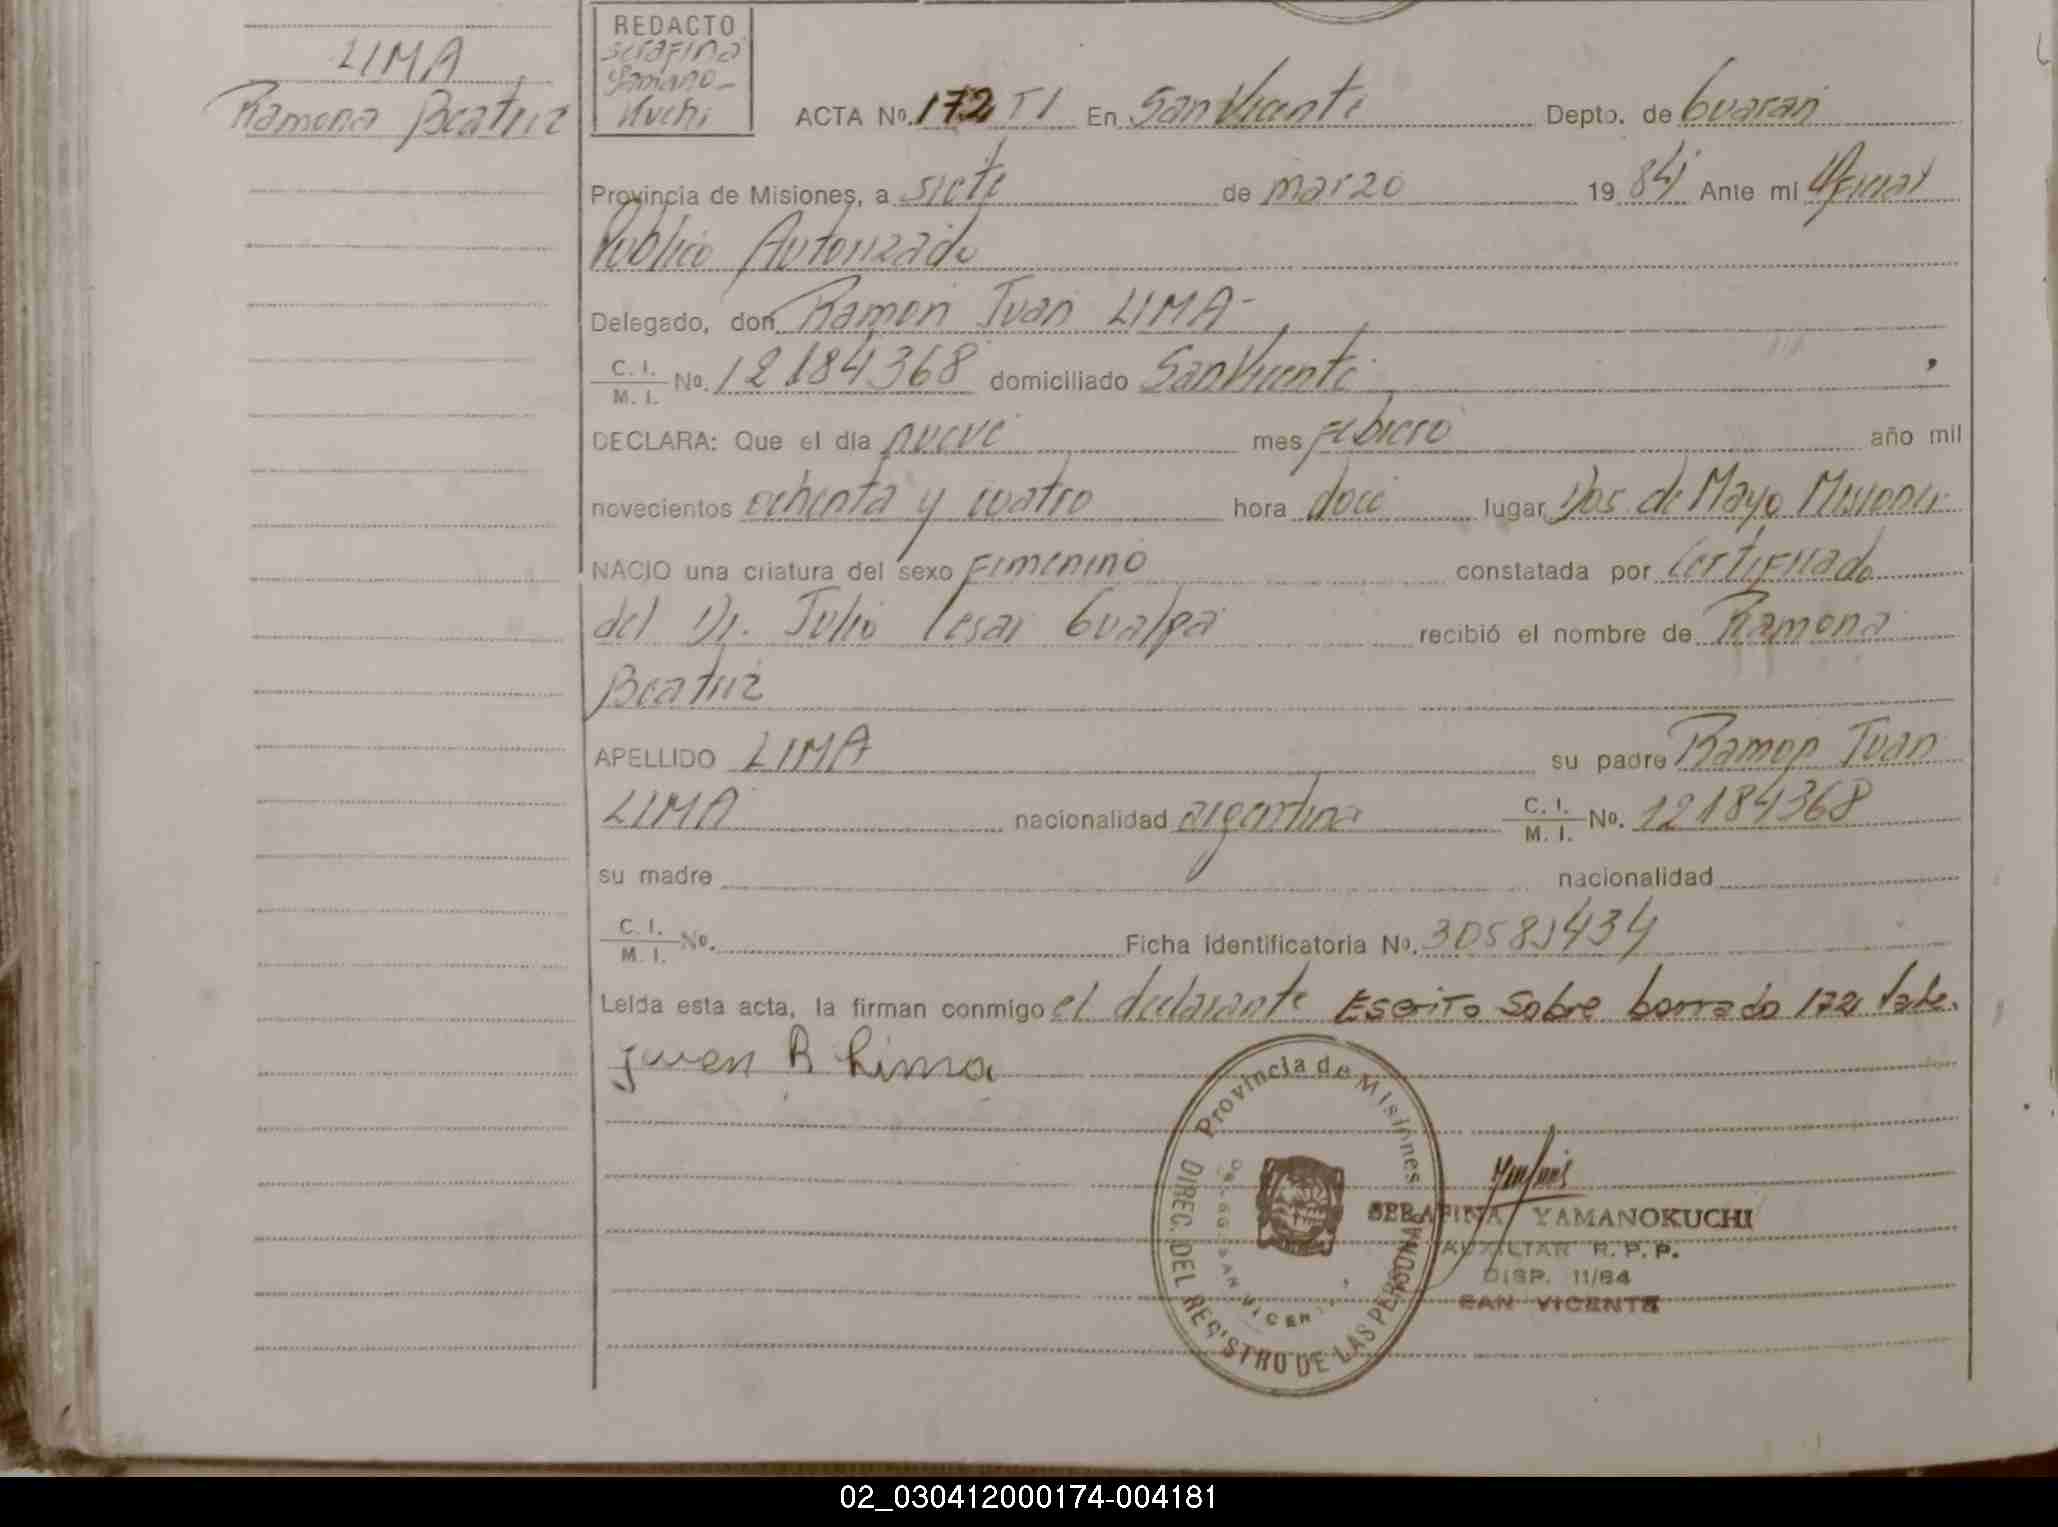 LIMA
Ramona Beatriz
REDACTO
Serafina
Yamano-
Kuchi
ACTA Nº. 172 T I En San Vicente Depto. de Guaraní
Provincia de Misiones, a siete de marzo 1984 Ante mí Oficial
Publico Autorizado
Delegado, don Ramon Juan LIMA-
C. I. / M. I. Nº. 12184368 domiciliado San Vicente
DECLARA: Que el día nueve mes febrero año mil
novecientos ochenta y cuatro hora doce lugar Dos de Mayo Misiones
NACIO una criatura del sexo Femenino constatada por Certificado
del Dr. Julio Cesar Gualpa recibió el nombre de Ramona
Beatriz
APELLIDO LIMA su padre Ramon Juan
LIMA nacionalidad argentina C. I. / M. I. Nº. 12184368
su madre nacionalidad
C. I. / M. I. Nº. Ficha Identificatoria Nº.
Leída esta acta, la firman conmigo el declarante Escrito Sobre borrado 172 Vale.
Juan R Lima
Provincia de Misiones
DIREC. DEL REGISTRO DE LAS PERSONAS
SAN VICENTE
SERAFINA YAMANOKUCHI
AUXILIAR R. P. P.
DISP. 11/84
SAN VICENTE
02_030412000174-004181